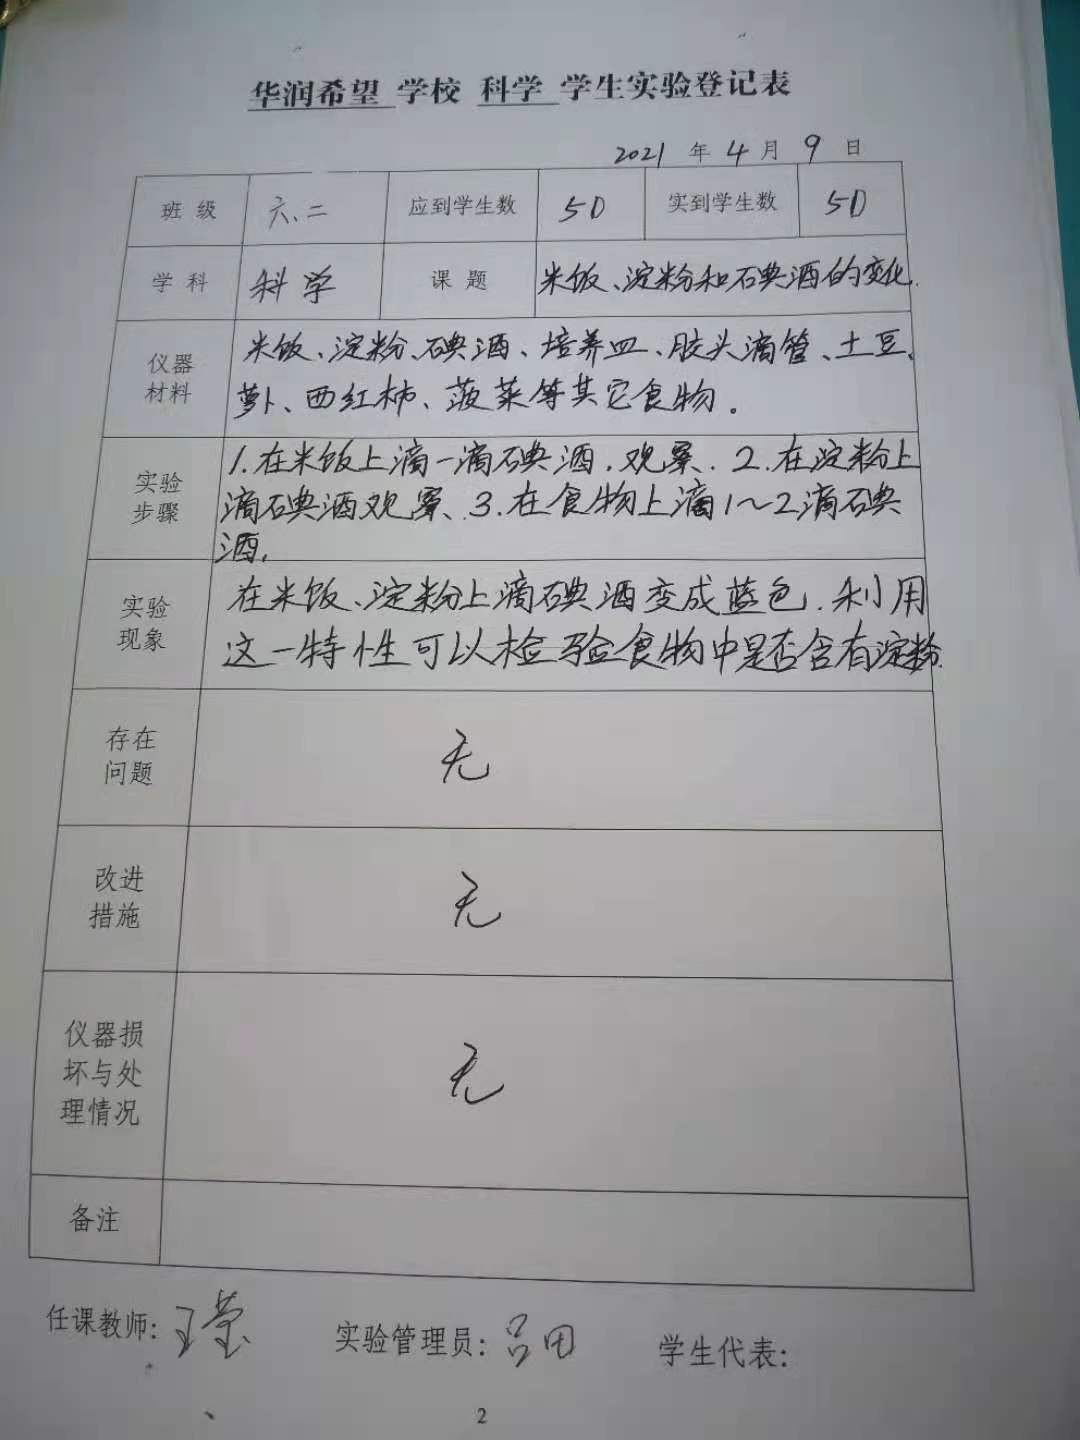 华润希望 学校 科学 学生实验登记表
2021 年 4 月 9 日
班 级 六.二 应到学生数 50 实到学生数 50
学 科 科学 课 题 米饭、淀粉和石典酒的变化.
仪器
材料
米饭、淀粉、碘酒、培养皿、胶头滴管、土豆、
萝卜、西红柿、菠菜等其它食物。
实验
步骤
1.在米饭上滴一滴碘酒.观察. 2.在淀粉上
滴碘酒观察、3.在食物上滴1~2滴碘
酒.
实验
现象
在米饭、淀粉上滴碘酒变成蓝色.利用
这一特性可以检验食物中是否含有淀粉.
存在
问题
无
改进
措施
无
仪器损
坏与处
理情况
无
备注
任课教师: 王莹 实验管理员: 吕田 学生代表:
2